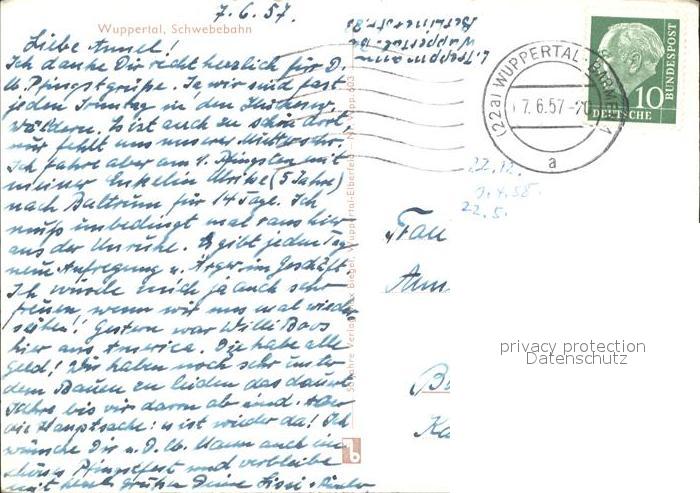 7.6.57.
Wuppertal, Schwebebahn
Liebe Annel!
Ich danke Dir recht herzlich für D.
lb. Pfingstgrüße. Ja wir sind fast
jeden Sonntag in den
wäldern. Es ist auch zu schön dort,
nur fehlt uns unsere
Ich fahre aber am 1. Pfingsten mit
meiner Enkelin Ulrike (5 Jahre)
nach Baltrum für 14 Tage. Ich
muß unbedingt mal raus hier
aus der Unruhe. Es gibt jeden Tag
neue Aufregung u. Ärger im Geschäft.
Ich würde mich ja auch sehr
freuen, wenn wir uns mal wieder
sehen! Gestern war Willi Boos
hier aus America. Die habe alle
Geld! Wir haben noch sehr unter
dem Bauen zu leiden das dauert
Jahre bis wir daran ab sind. Aber
die Hauptsache: es ist wieder da! Ich
wünsche Dir u. D. lb. Mann auch ein
schönes Pfingstfest und verbleibe
mit herzl. Grüßen Deine Lissi
L. Troppmann
Wuppertal-Ba
Berlinerstr.
(22a) WUPPERTAL-BARMEN 1
7.6.57-20
a
10
DEUTSCHE
BUNDESPOST
22.12.
9.4.58.
22.5.
Frau
privacy protection
Datenschutz